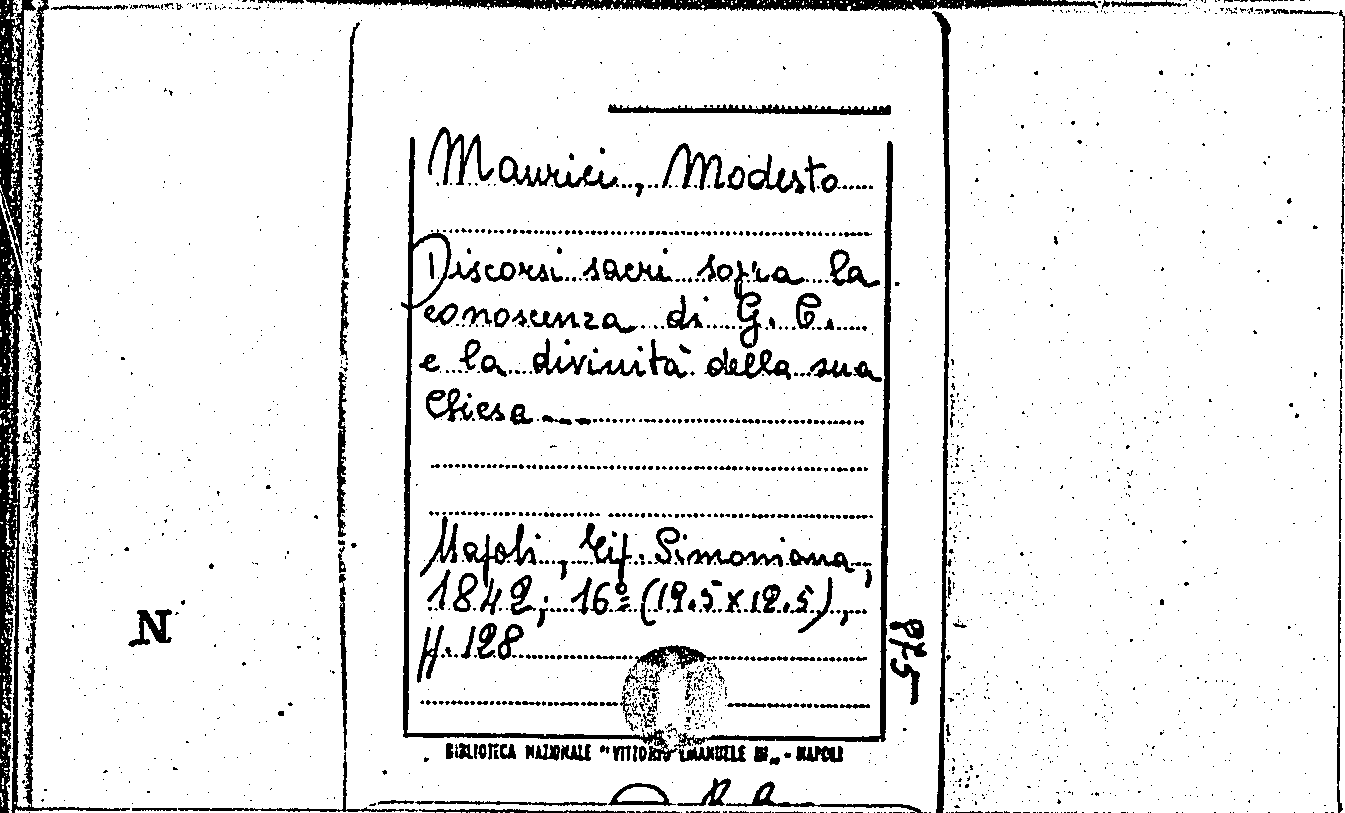 Maurici, Modesto
Discorsi sacri sopra la
conoscenza di G. C.
e la divinità della sua
Chiesa ...
Napoli, Tip. Simoniana,
1842; 16º (19.5 x 12.5),
pp. 128
875
N
BIBLIOTECA NAZIONALE "VITTORIO EMANUELE III" - NAPOLI